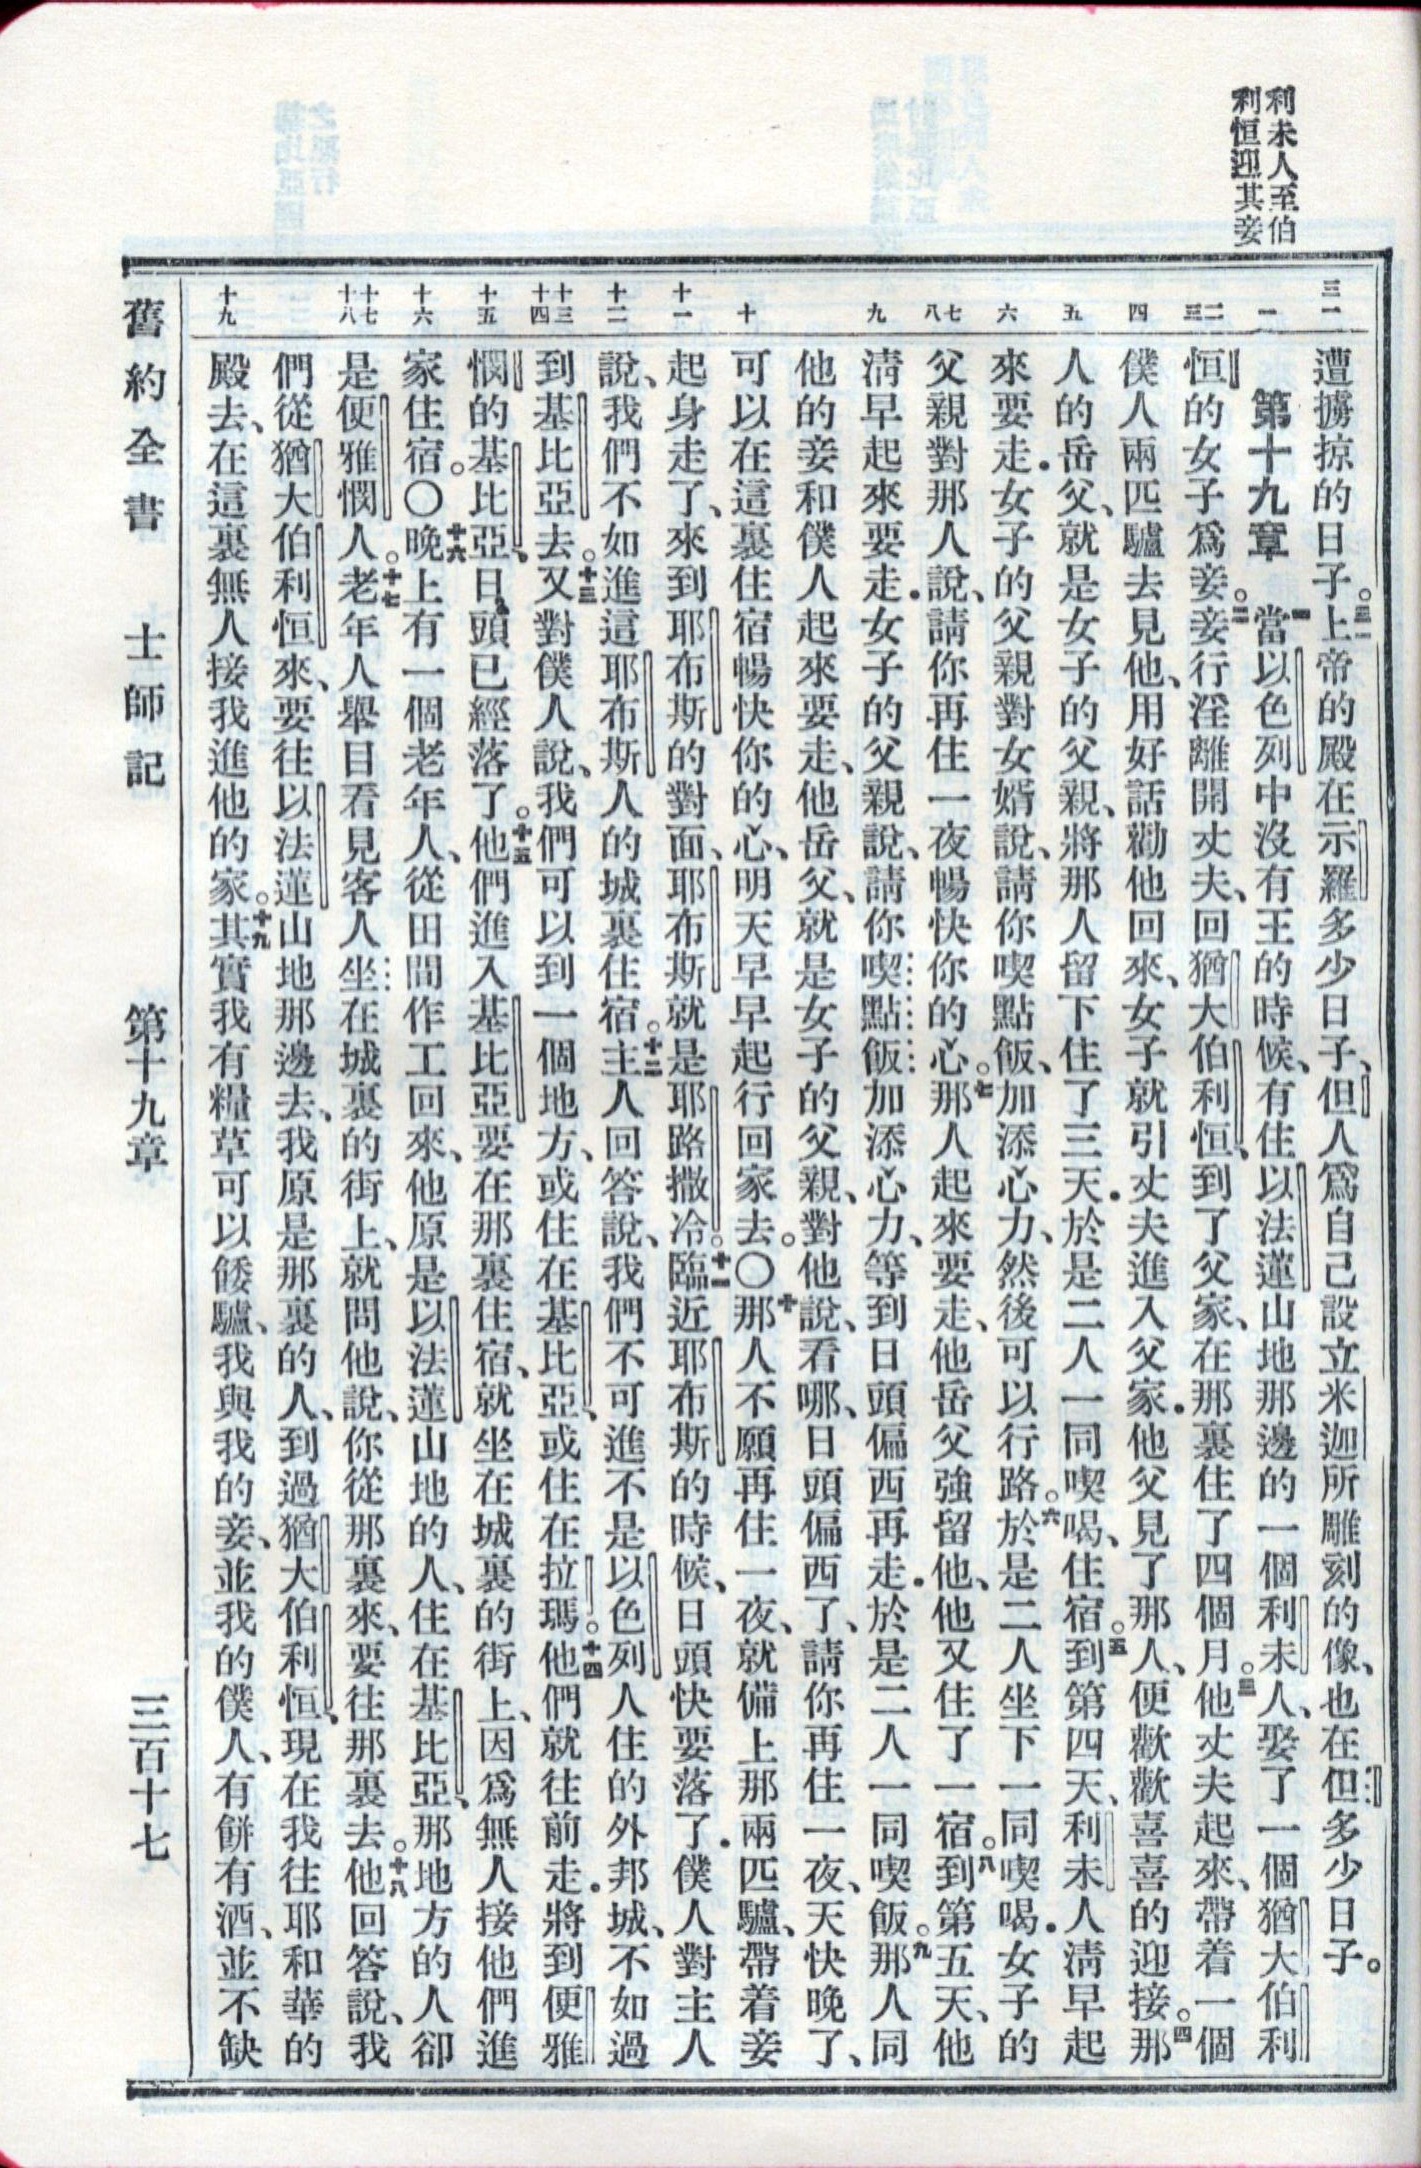 利未人至伯
利恒迎其妾
三一
一
二 三
四
五
六
七 八
九
十
十一
十二
十三 十四
十五
十六
十七 十八
十九
遭擄掠的日子。三一上帝的殿在示羅多少日子、但人爲自己設立米迦所雕刻的像、也在但多少日子。
第十九章 一當以色列中沒有王的時候、有住以法蓮山地那邊的一個利未人、娶了一個猶大伯利
恒的女子爲妾。二妾行淫離開丈夫、回猶大伯利恒、到了父家、在那裏住了四個月。三他丈夫起來、帶着一個
僕人兩匹驢去見他、用好話勸他回來、女子就引丈夫進入父家．他父見了那人、便歡歡喜喜的迎接。四那
人的岳父、就是女子的父親、將那人留下住了三天．於是二人一同喫喝、住宿。五到第四天、利未人淸早起
來要走．女子的父親對女婿說、請你喫點飯、加添心力、然後可以行路。六於是二人坐下一同喫喝．女子的
父親對那人說、請你再住一夜暢快你的心。七那人起來要走、他岳父強留他、他又住了一宿。八到第五天、他
淸早起來要走．女子的父親說、請你喫點飯加添心力、等到日頭偏西再走．於是二人一同喫飯。九那人同
他的妾和僕人起來要走、他岳父、就是女子的父親、對他說、看哪、日頭偏西了、請你再住一夜、天快晚了、
可以在這裏住宿暢快你的心、明天早早起行回家去。〇十那人不願再住一夜、就備上那兩匹驢、帶着妾
起身走了、來到耶布斯的對面、耶布斯就是耶路撒冷。十一臨近耶布斯的時候、日頭快要落了．僕人對主人
說、我們不如進這耶布斯人的城裏住宿。十二主人回答說、我們不可進不是以色列人住的外邦城、不如過
到基比亞去。十三又對僕人說、我們可以到一個地方、或住在基比亞、或住在拉瑪。十四他們就往前走．將到便雅
憫的基比亞、日頭已經落了。十五他們進入基比亞要在那裏住宿、就坐在城裏的街上、因爲無人接他們進
家住宿。〇十六晚上有一個老年人、從田間作工回來、他原是以法蓮山地的人、住在基比亞、那地方的人卻
是便雅憫人。十七老年人舉目看見客人坐在城裏的街上、就問他說、你從那裏來、要往那裏去。十八他回答說、我
們從猶大伯利恒來、要往以法蓮山地那邊去、我原是那裏的人、到過猶大伯利恒、現在我往耶和華的
殿去、在這裏無人接我進他的家。十九其實我有糧草可以餧驢、我與我的妾、並我的僕人、有餅有酒、並不缺
舊約全書 士師記 第十九章 三百十七